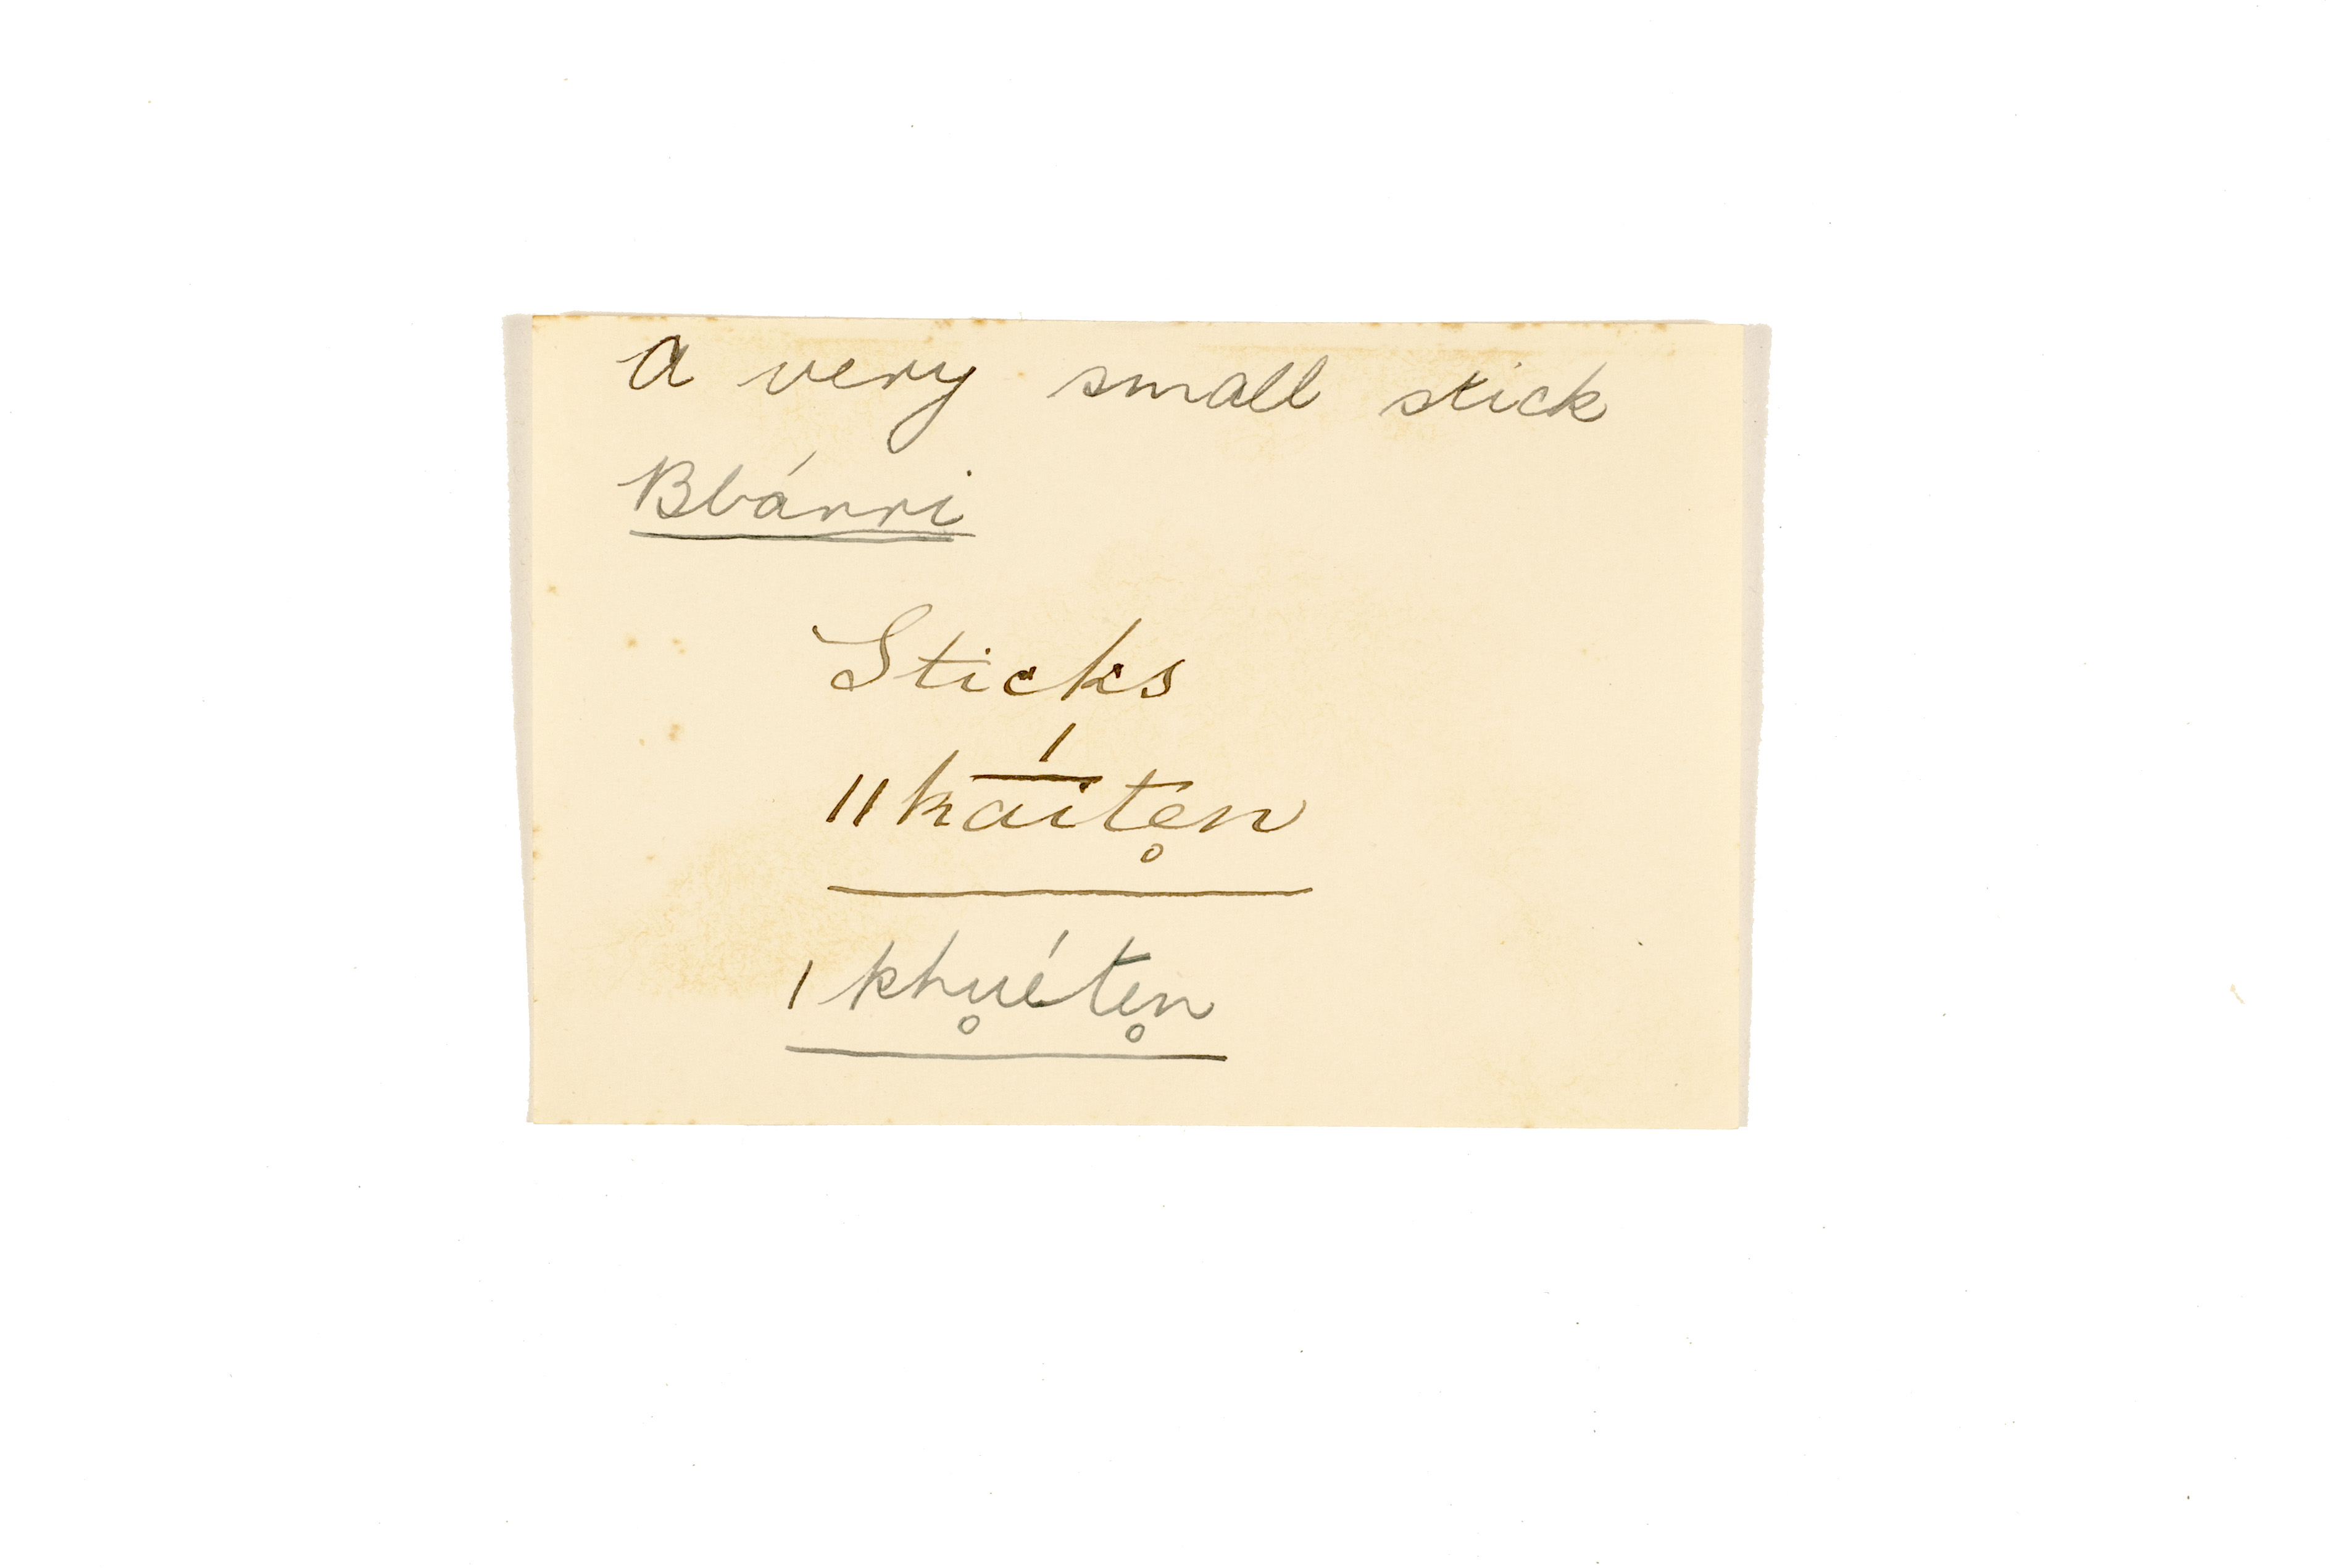 A very small stick
Bbárri
Sticks
ǁka͞íte̥n
ǀkhu̥éte̥n